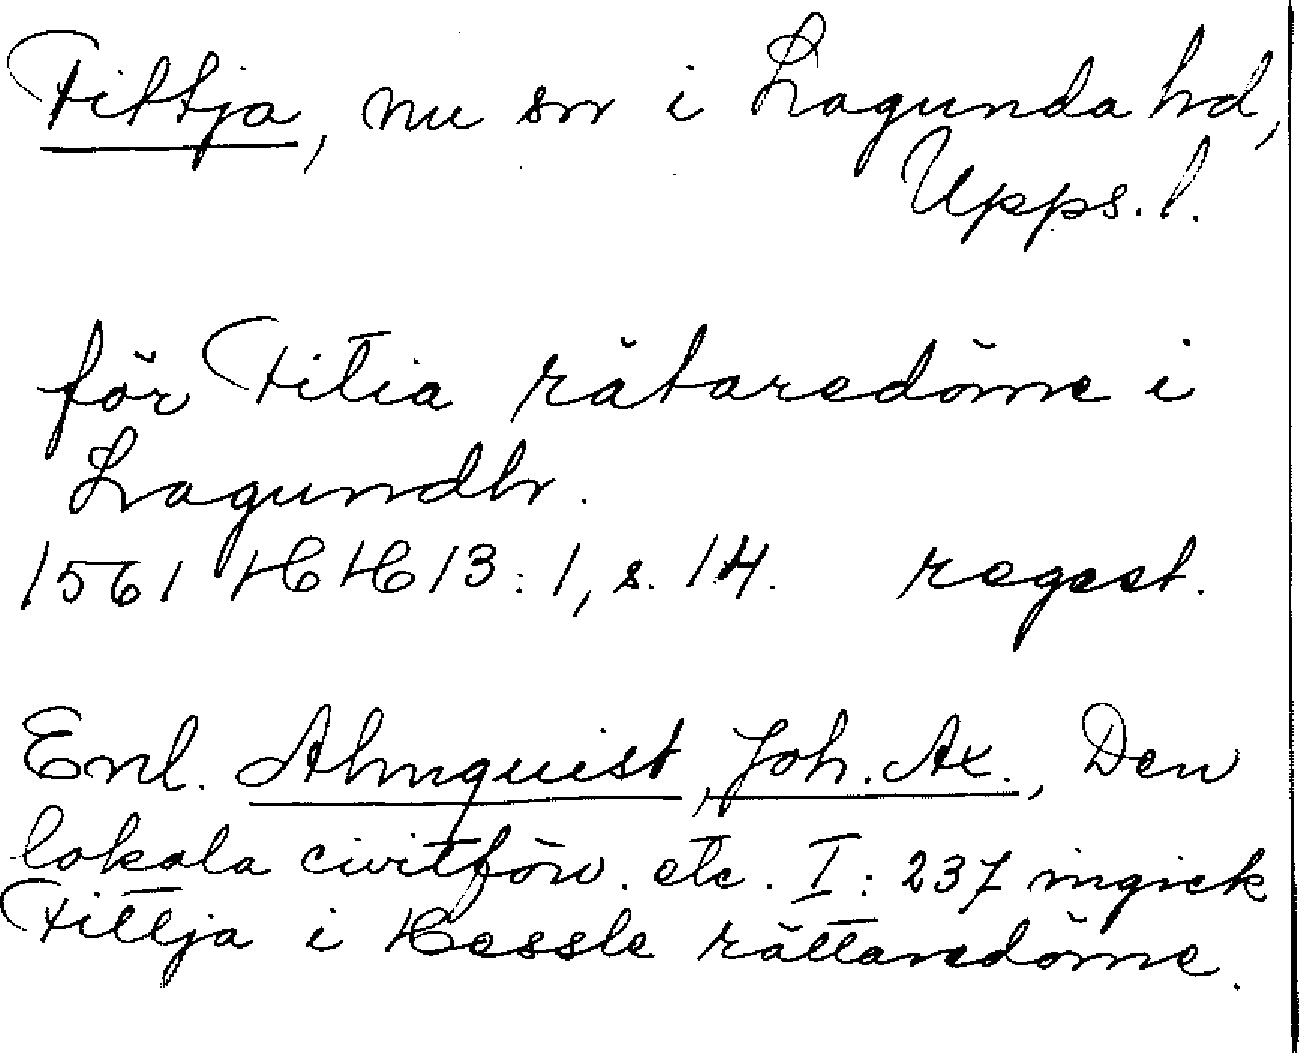 Fittja, nu sn i Lagunda hd,
Upps. l.
för Fitia rätaredöme i
Lagundhr.
1561 HH 13:1, s. 14. regest.
Enl. Almquist, Joh. Ax., Den
lokala civilförv. etc. I: 237 ingick
Fittja i Hessle rättaredöme.